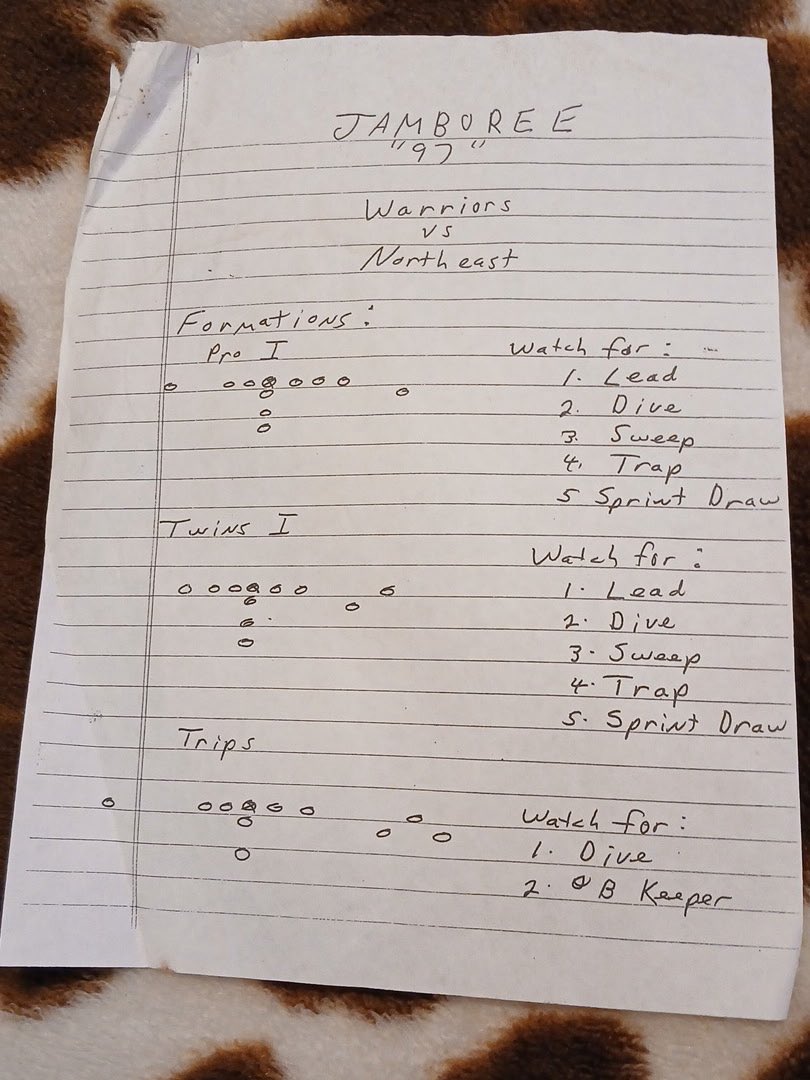 JAMBOREE
"97"
Warriors
vs
Northeast
Formations:
Pro I
Watch for:
1. Lead
2. Dive
3. Sweep
4. Trap
5 Sprint Draw
Twins I
Watch for:
1. Lead
2. Dive
3. Sweep
4. Trap
5. Sprint Draw
Trips
Watch for:
1. Dive
2. QB Keeper